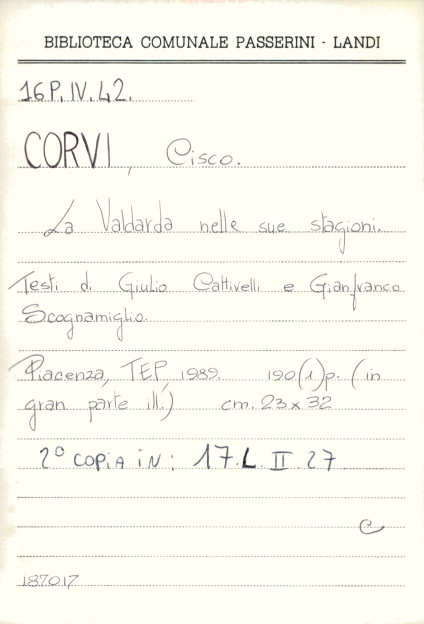 BIBLIOTECA COMUNALE PASSERINI - LANDI
16 P. IV. 42.
CORVI, Cisco.
La Valdarda nelle sue stagioni.
Testi di Giulio Cattivelli e Gianfranco
Scognamiglio.
Piacenza, TEP, 1989. 190(1)p. (in
gran parte ill.) cm. 23x32
2° COPIA IN: 17.L. II 27
C
187017